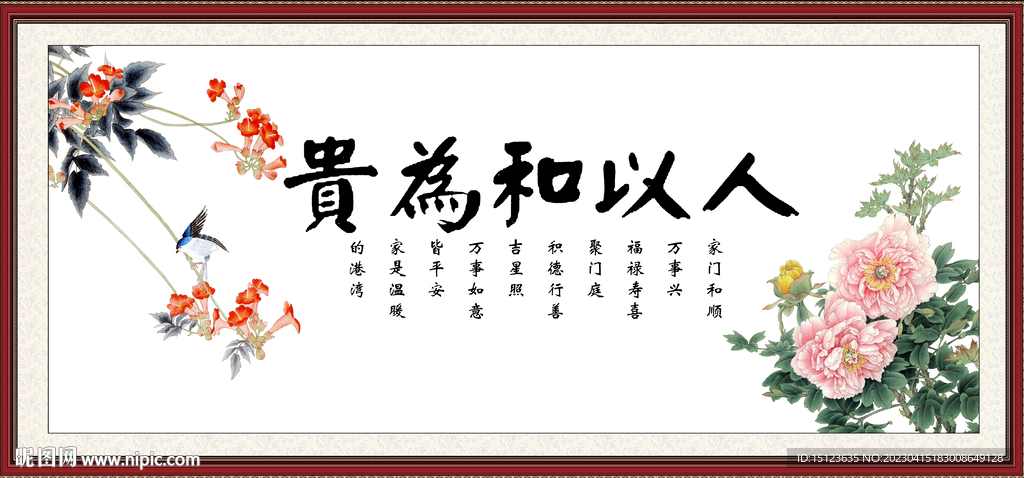 人以和為貴
家门和顺
万事兴
福禄寿喜
聚门庭
积德行善
吉星照
万事如意
皆平安
家是温暖
的港湾
昵图网 www.nipic.com
ID:15123635 NO:20230415183008649128